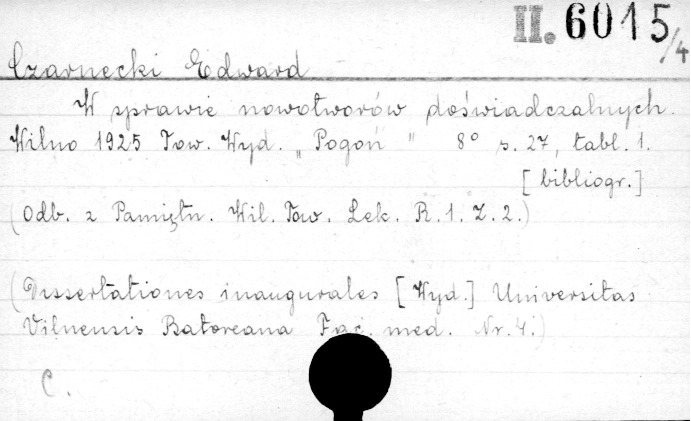 II. 6015/4
Czarnecki Edward
W sprawie nowotworów doświadczalnych.
Wilno 1925 Tow. Wyd. „Pogoń" 8° s. 27, tabl. 1.
[bibliogr.]
(Odb. z Pamiętn. Wil. Tow. Lek. R. 1. Z. 2.)
(Dissertationes inaugurales [Wyd.] Universitas
Vilnensis Batoreana Fac. med. Nr. 4.)
C.